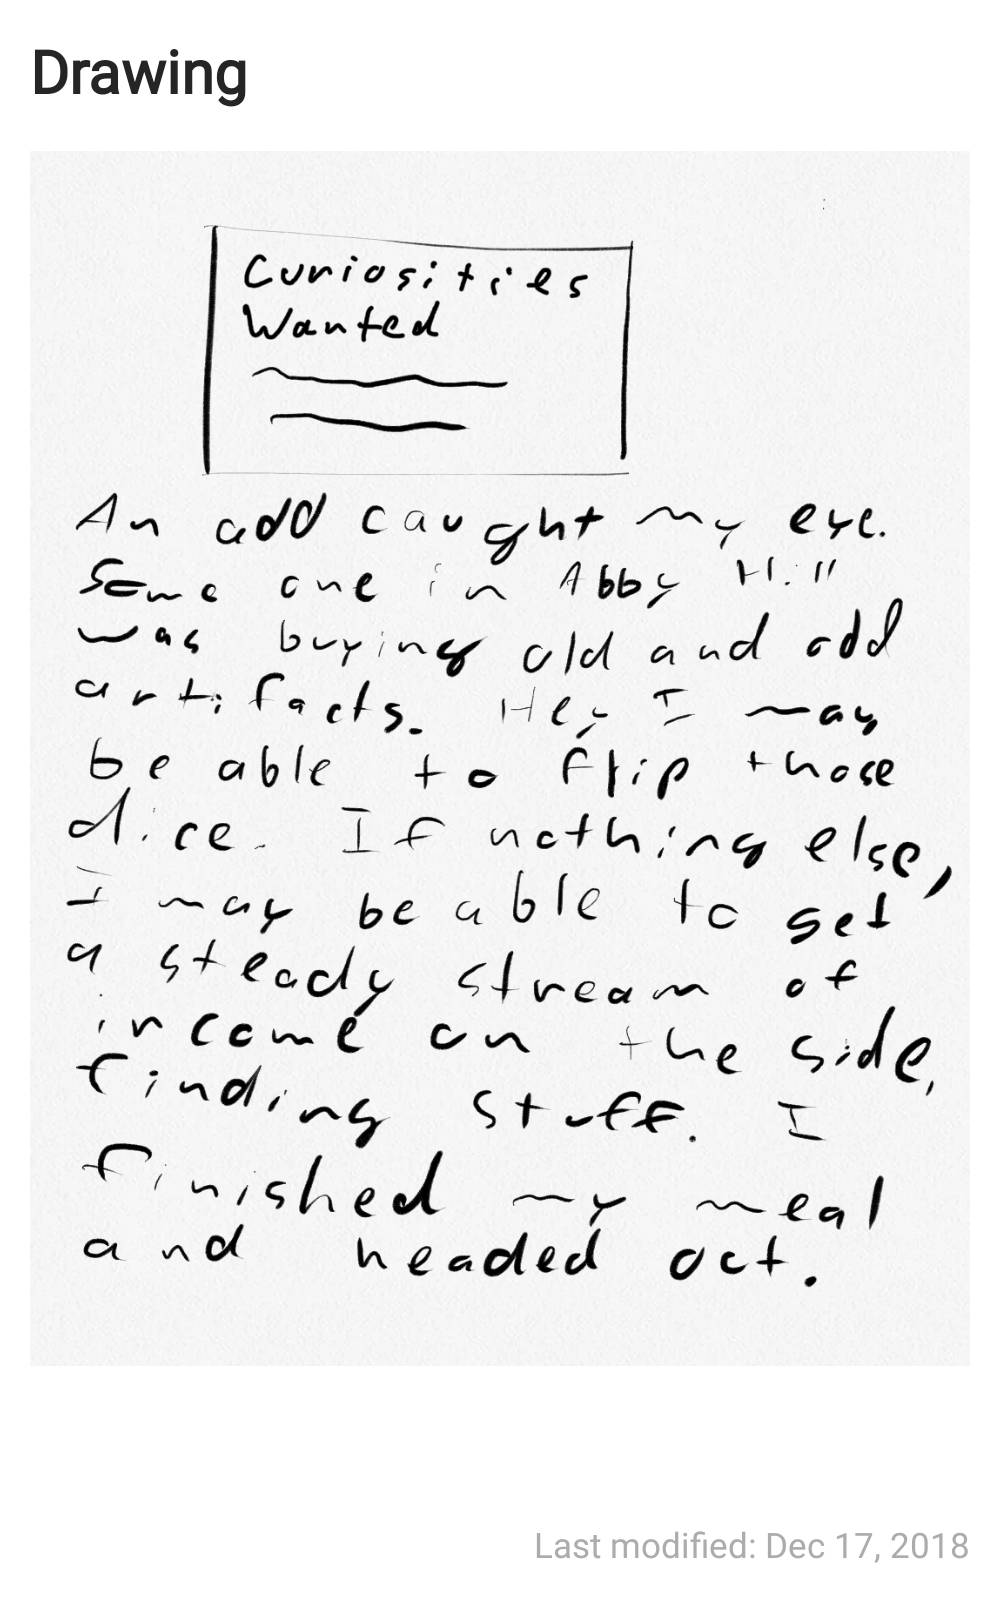 Drawing
Curiosities
Wanted
An add caught my eye.
Some one in Abby Hill
was buying old and odd
artifacts. Hey I may
be able to flip those
dice. If nothing else,
I may be able to get
a steady stream of
income on the side,
finding stuff. I
finished my meal
and headed out.
Last modified: Dec 17, 2018